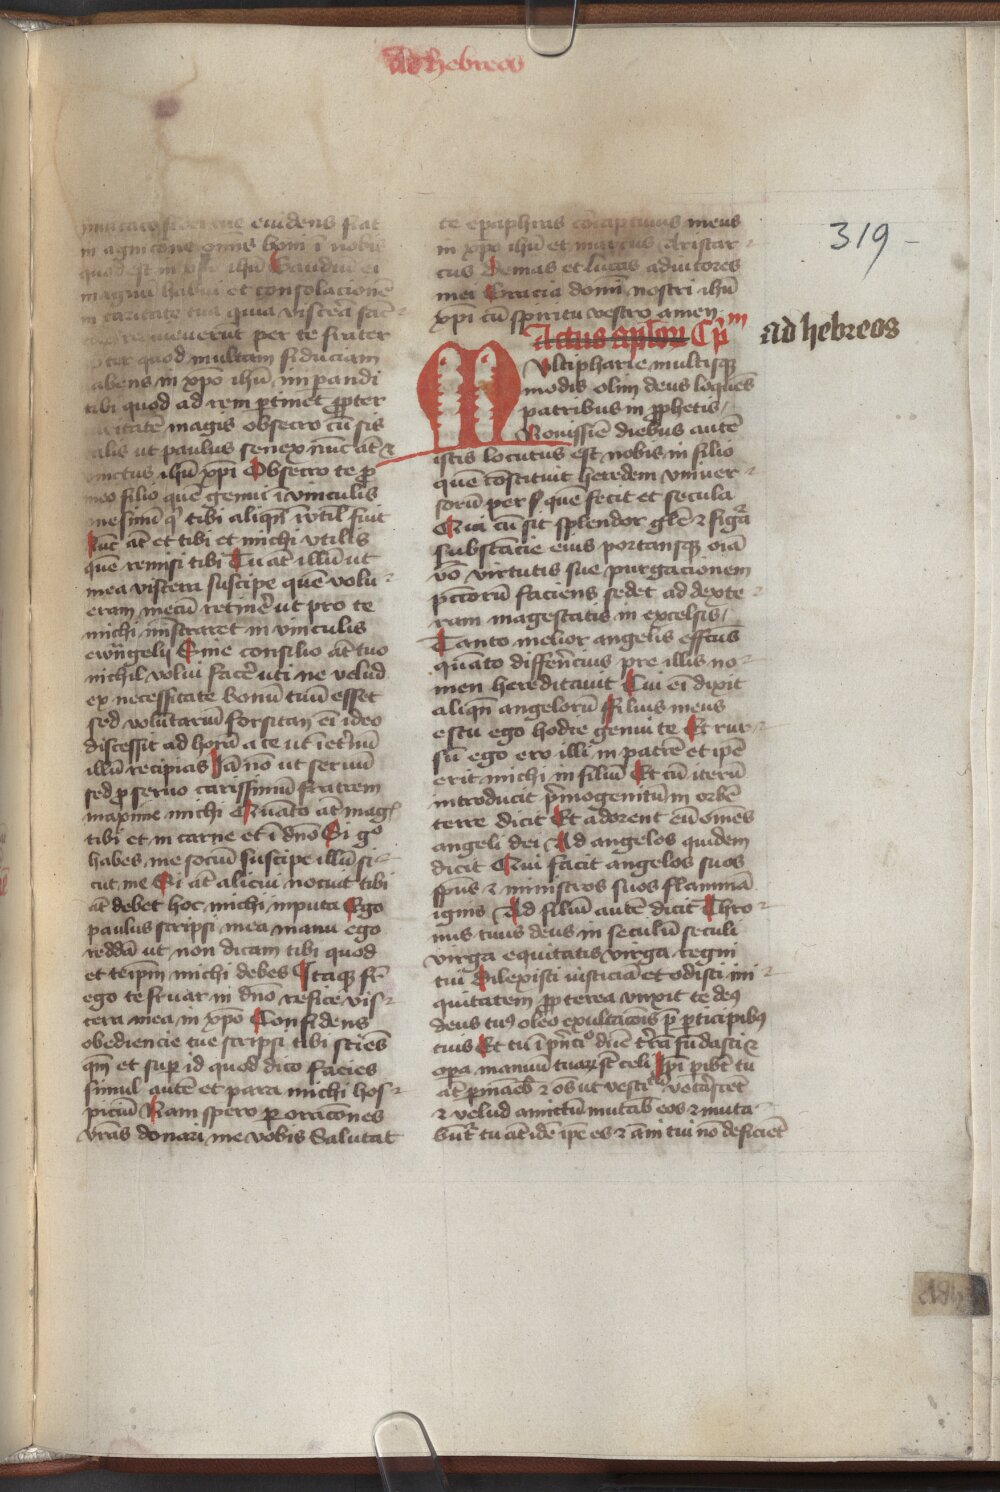 Ad hebreos
evidens fiat
in agnicione omnis boni ī nobis
quod est in xpō ihū Gaudiū ei
magnū habui et consolacionē
in caritate tua quia viscera scōꝝ
requieverūt per te frater
pter quod multam fiduciam
abens in xpō ihū imperandi
tibi quod ad rem ꝑtinet ꝓpter
caritatē magis obsecro cū sis
talis ut paulus senex nūc aūt ⁊
vinctus ihū xpi Obsecro te ꝓ
meo filio quē genui ī vinculis
nesimū qͥ tibi aliqn̄ īvtil' fuit
Nūc aūt et tibi et michi vtilis
quē remisi tibi Tu aūt illū ut
mea viscera suscipe quē volu
eram mecū retinēr ut pro te
michi mīstraret in vinculis
ewāngelij Sine consilio aūt tuo
nichil volui facēr uti ne velud
ex necessitate bonū tuū esset
sed volūtariū forsitan eī ideo
discessit ad horā a te ut ī eternū
illū recipias Jā nō ut servū
sed ꝓ servo carissimū fratrem
maxime michi Quāto aūt magꝭ
tibi et in carne et ī dn̄o Si gͦ
habes me sociū suscipe illū si
cut me Si aūt aliciui nocuit tibi
aūt debet hoc michi inputa Ego
paulus scripsi mea manu ego
reddā ut non dicam tibi quod
et teipm̄ michi debes Itaqꝫ fr̄
ego te fruar in dn̄o refice vis
cera mea in xpō Confidens
obediencie tue scripsi tibi sciēs
qm̄ et suꝑ id quod dico facies
simul autē et para michi hos
piciū Nam spero ꝑ oracōnes
vr̄as donari me vobis Salutat
te epaphras cōcaptivus meus
in xpō ihū et marcus Aristar
cus Demas et lucas adiutores
mei Gracia domī nostri ihū
xpi cū spiritu vestro amen
Actus aplōꝝ Cpͫ
ad hebreos
319
Multipharie multisqꝫ
modis olim deus loquēs
patribus in ꝓphetis
Novissiē diebus autē
istis locutus est nobis in filio
quē cōstituit heredem vniver
sorū per que fecit et secula
Qui cū sit splendor glē ⁊ figͣ
substācie eius portansqꝫ oīa
vō virtutis sue purgacionem
pccōrū faciens sedet ad dexte
ram magestatis in excelsis
Tanto melior angelis effcūs
quāto differēcius pre illis no
men hereditavit Cui eī dixit
aliqn̄ angelorū Filius meus
es tu ego hodie genui te Et rur
sū ego ero illi in patrē et ipē
erit michi in filiū Et cū iterū
introducit pͥmogenitū in orbē
terre dicit Et adorent eū omēs
angeli dei Ad angelos quidem
dicit Qui facit angelos suos
spūs ⁊ ministros suos flammā
ignis Ad filiū autē dicit Thro
nus tuus deus in seculū seculi
virga equitatis virga regni
tui Dilexisti iusticiā et odisti ini
quitatem ꝓpterea vnxit te deꝰ
deus tuꝰ oleo exultacōis p̄ ꝑticipibꝰ
tuis Et tu ī pͥncͦ dn̄e t̄rā fūdasti ⁊
opa manuū tuaꝝ st̄ celi Ipi pibūt tu
aūt ꝑmāeb̄ ⁊ oēs ut vestitū vet̄ascēt
⁊ velud amictū mutab̄ eos ⁊ muta
būt̄ tu aūt idē ipē es ⁊ ānī tui nō deficiēt